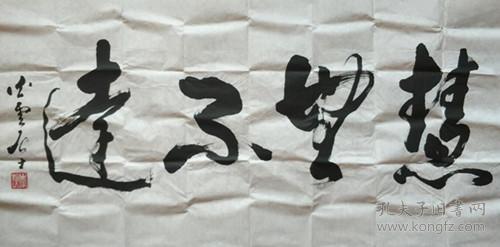 慧無不達
雲居士
孔夫子旧书网
www.kongfz.com